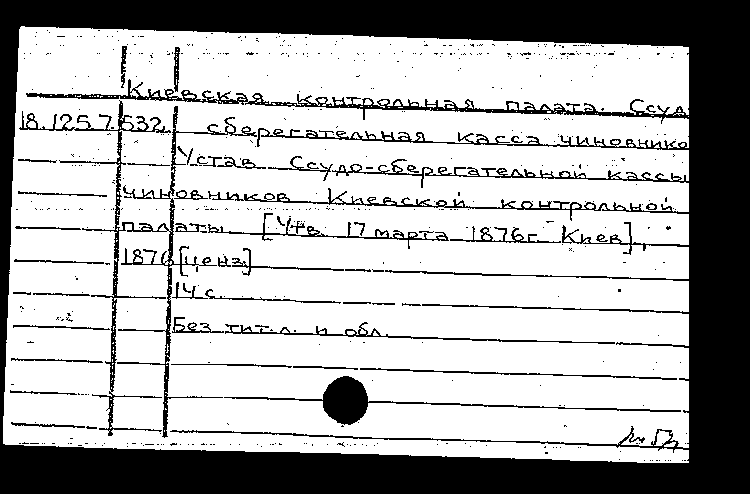 Киевская контрольная палата. Ссуд
18.125.7.532. сберегательная касса чиновнико
Устав Ссудо-сберегательной кассы
чиновников Киевской контрольной
палаты. [Утв. 17 марта 1876г. Киев],
1876 [ценз]
14 с.
Без тит.л. и обл.